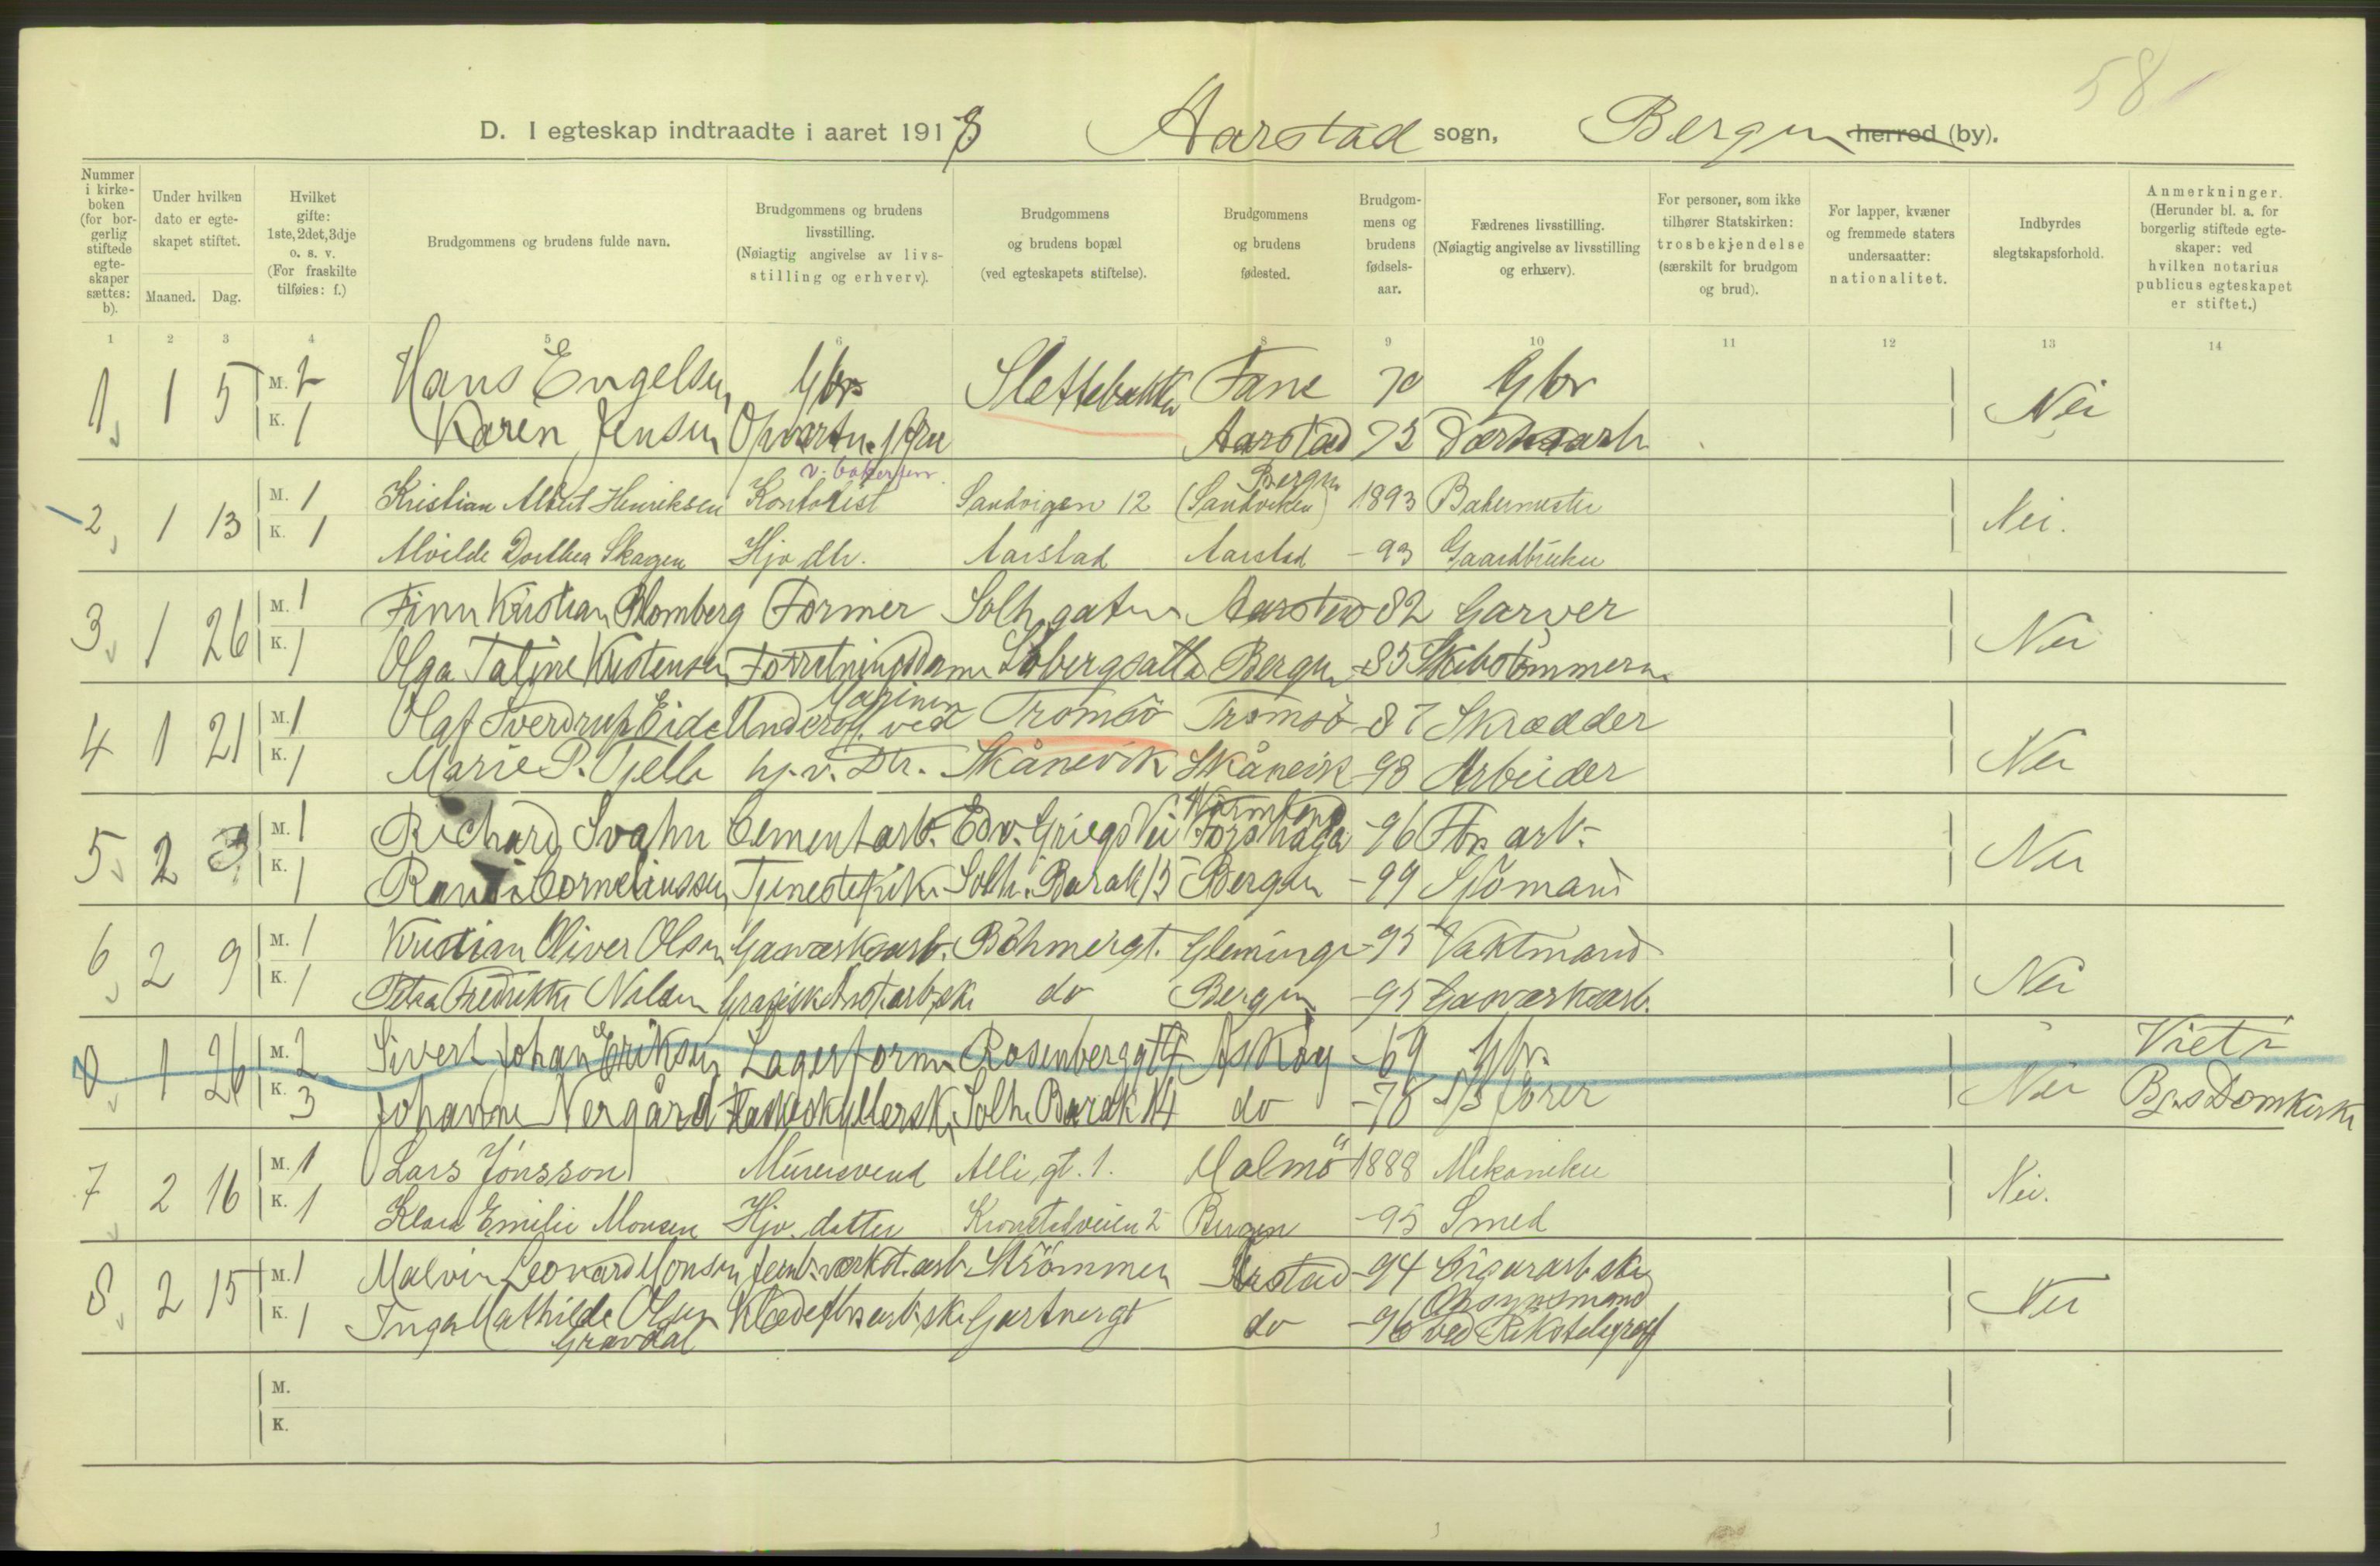 58
D. I egteskap indtraadte i aaret 1918 Aarstad sogn, Bergen herred (by).
Nummer i kirkeboken (for borgerlig stiftede egteskaper sættes: b).
Under hvilken dato er egteskapet stiftet.
Maaned. Dag.
Hvilket gifte: 1ste, 2det, 3dje o. s. v. (For fraskilte tilføies: f.)
Brudgommens og brudens fulde navn.
Brudgommens og brudens livsstilling. (Nøiagtig angivelse av livsstilling og erhverv).
Brudgommens og brudens bopæl (ved egteskapets stiftelse).
Brudgommens og brudens fødested.
Brudgommens og brudens fødselsaar.
Fædrenes livsstilling. (Nøiagtig angivelse av livsstilling og erhverv).
For personer, som ikke tilhører Statskirken: trosbekjendelse (særskilt for brudgom og brud).
For lapper, kvæner og fremmede staters undersaatter: nationalitet.
Indbyrdes slegtskapsforhold.
Anmerkninger. (Herunder bl. a. for borgerlig stiftede egteskaper: ved hvilken notarius publicus egteskapet er stiftet.)
1 2 3 4 5 6 7 8 9 10 11 12 13 14
1 1 5 M. 2 Hans Engelsen Gbr Slettebakken Fane 70 Gbr Nei
K. 1 Karen Jensen Aarstad 73
v. bakerforr. Bergen
2 1 13 M. 1 Kristian Albert Henriksen Kontorist Sandvigen 12 (Sandviken) 1893 Bakermester Nei.
K. 1 Alvilde Dorthea Skagen Hjv dtr. Aarstad Aarstad -93 Gaardbruker
3 1 26 M. 1 Finn Kristian Blomberg Former Solh. gaten Aarstad 82 Garver Nei
K. 1 Olga Taline Kristensen Forretningsdame Bergen -85 Skibstømmerm.
Marinen
4 1 21 M. 1 Olaf Sverdrup Eide Underoff. ved Tromsö Tromsö -87 Skrædder Nei
K. 1 Marie P. Tjelle hj. v. Dtr. Skånevik Skånevik -93 Arbeider
Värmland
5 2 3 M. 1 Richard Svahn Cementarb. Edv. Griegs Vei Forshaga -96 Fbr. arb. Nei
K. 1 Randi Corneliussen Tjenestepike Solh. Barak 13 Bergen -99 Sjömand
6 2 9 M. 1 Kristian Oliver Olsen Gasværksarb. Böhmergt. Glemminge -95 Vaktmand Nei
K. 1 Petra Fredrikke Nilsen Grafisk Anst. arb.ske do Bergen -95 Gasværksarb.
0 1 26 M. 2 Sivert Johan Eriksen Lagerform. Rosenberggt Askøy -69 Gbr. Nei Viet i
K. 3 Johanne Nergård Flaskeskyllerske Solh. Barak 14 do -78 Bgns Domkirke
7 2 16 M. 1 Lars Jönsson Murersvend Alli. gt. 1. Malmö 1888 Mekaniker Nei.
K. 1 Klara Emilie Monsen Hjv. datter Kronstadveien 2 Bergen -95 Smed
8 2 15 M. 1 Malvin Leonard Monsen Jernb. værkst. arb. Strömmen Årstad -94 Cigararb.ske Nei
Opsynsmand
K. 1 Inga Mathilde Olsen Klædefbr. arb.ske Gartnergt do -96 ved Rikstelegraf
Gravdal
M.
K.